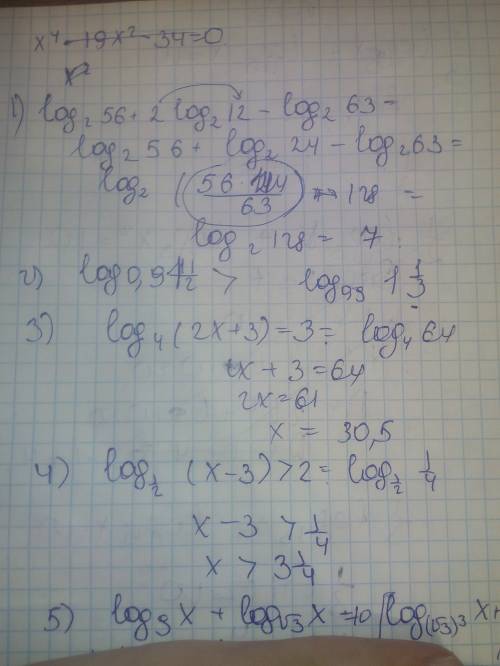 x⁴ - 19x² - 34 = 0
x²
1) log₂ 56 + 2 log₂ 12 - log₂ 63 =
log₂ 56 + log₂ 24 - log₂ 63 =
log₂ (56 · 144 / 63) = 128 =
log₂ 128 = 7
2) log 0,9 1 1/2 > log₀,₉ 1 1/3
3) log₄ (2x+3) = 3 = log₄ 64
2x + 3 = 64
2x = 61
x = 30,5
4) log_1/2 (x-3) > 2 = log_1/2 1/4
x - 3 > 1/4
x > 3 1/4
5) log₃ x + log_√3 x = 10 / log_(√3)³ x +